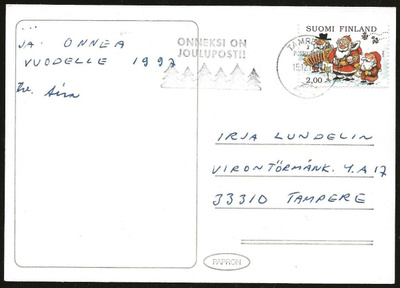 ...
JA ONNEA
VUODELLE 1997
ONNEKSI ON
JOULUPOSTI!
SUOMI FINLAND
2,00
IRJA LUNDELIN
VIRONTÖRMÄNK. 4 A 17
33310 TAMPERE
PAPRON